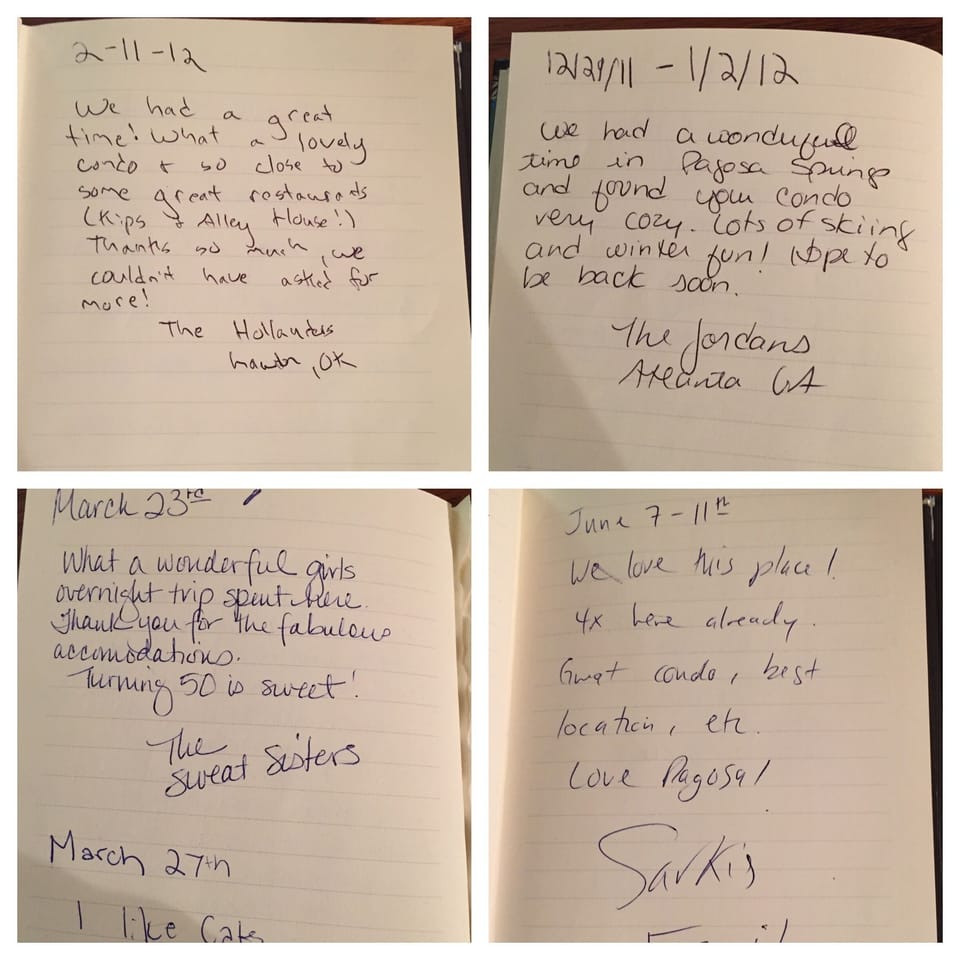 2-11-12
We had a great
time! What a lovely
condo & so close to
some great restaurants
(Kips & Alley House!)
Thanks so much, we
couldn't have asked for
more!
The Hollanders
Lawton, OK
12/29/11 - 1/2/12
We had a wonderfull
time in Pagosa Springs
and found your condo
very cozy. Lots of skiing
and winter fun! Hope to
be back soon.
The Jordans
Atlanta GA
March 23rd
What a wonderful girls
overnight trip spent here.
Thank you for the fabulous
accomodations.
Turning 50 is sweet!
The
Sweat Sisters
March 27th
I like Cats
June 7-11th
We love this place!
4x here already.
Great condo, best
location, etc.
Love Pagosa!
Sarkis